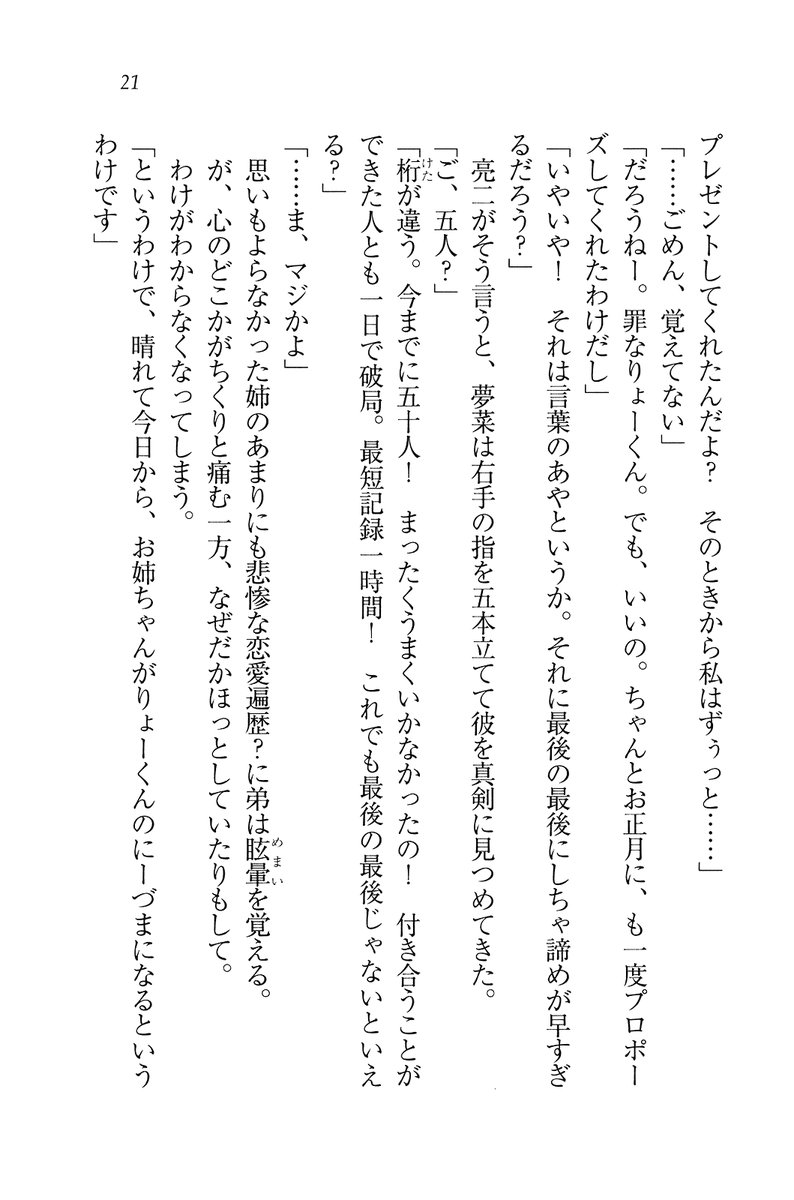 21
プレゼントしてくれたんだよ？　そのときから私はずぅっと……」
「……ごめん、覚えてない」
「だろうねー。罪なりょーくん。でも、いいの。ちゃんとお正月に、も一度プロポー
ズしてくれたわけだし」
「いやいや！　それは言葉のあやというか。それに最後の最後にしちゃ諦めが早すぎ
るだろう？」
　亮二がそう言うと、夢菜は右手の指を五本立てて彼を真剣に見つめてきた。
「ご、五人？」
「桁が違う。今までに五十人！　まったくうまくいかなかったの！　付き合うことが
できた人とも一日で破局。最短記録一時間！　これでも最後の最後じゃないといえ
る？」
「……ま、マジかよ」
　思いもよらなかった姉のあまりにも悲惨な恋愛遍歴？に弟は眩暈を覚える。
　が、心のどこかがちくりと痛む一方、なぜだかほっとしていたりもして。
　わけがわからなくなってしまう。
「というわけで、晴れて今日から、お姉ちゃんがりょーくんのにーづまになるという
わけです」
けた
めまい